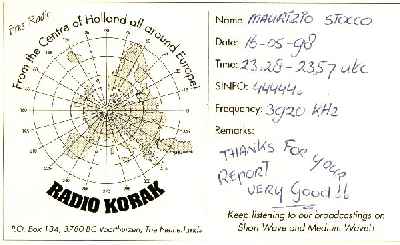 Free Radio
From the Centre of Holland all around Europe!
RADIO KORAK
P.O. Box 134, 3780 BC Voorthuizen, The Netherlands
Name: MAURIZIO STOCCO
Date: 16-05-98
Time: 23.28 - 23.57 utc
SINFO: 44444.
Frequency: 3920 KHz
Remarks:
THANKS FOR YOUR
REPORT
VERY GOOD!!
Keep listening to our broadcastings on
Short Wave and Medium Wave!!